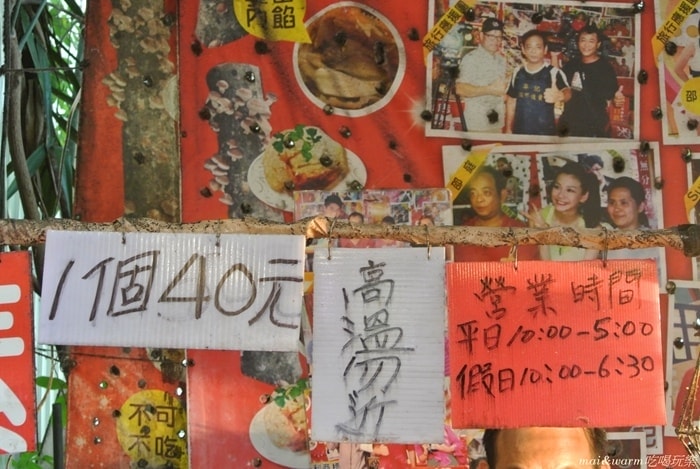 內餡
1個40元
高溫勿近
營業時間
平日10:00-5:00
假日10:00-6:30
不可
不吃
mai&warm吃喝玩樂